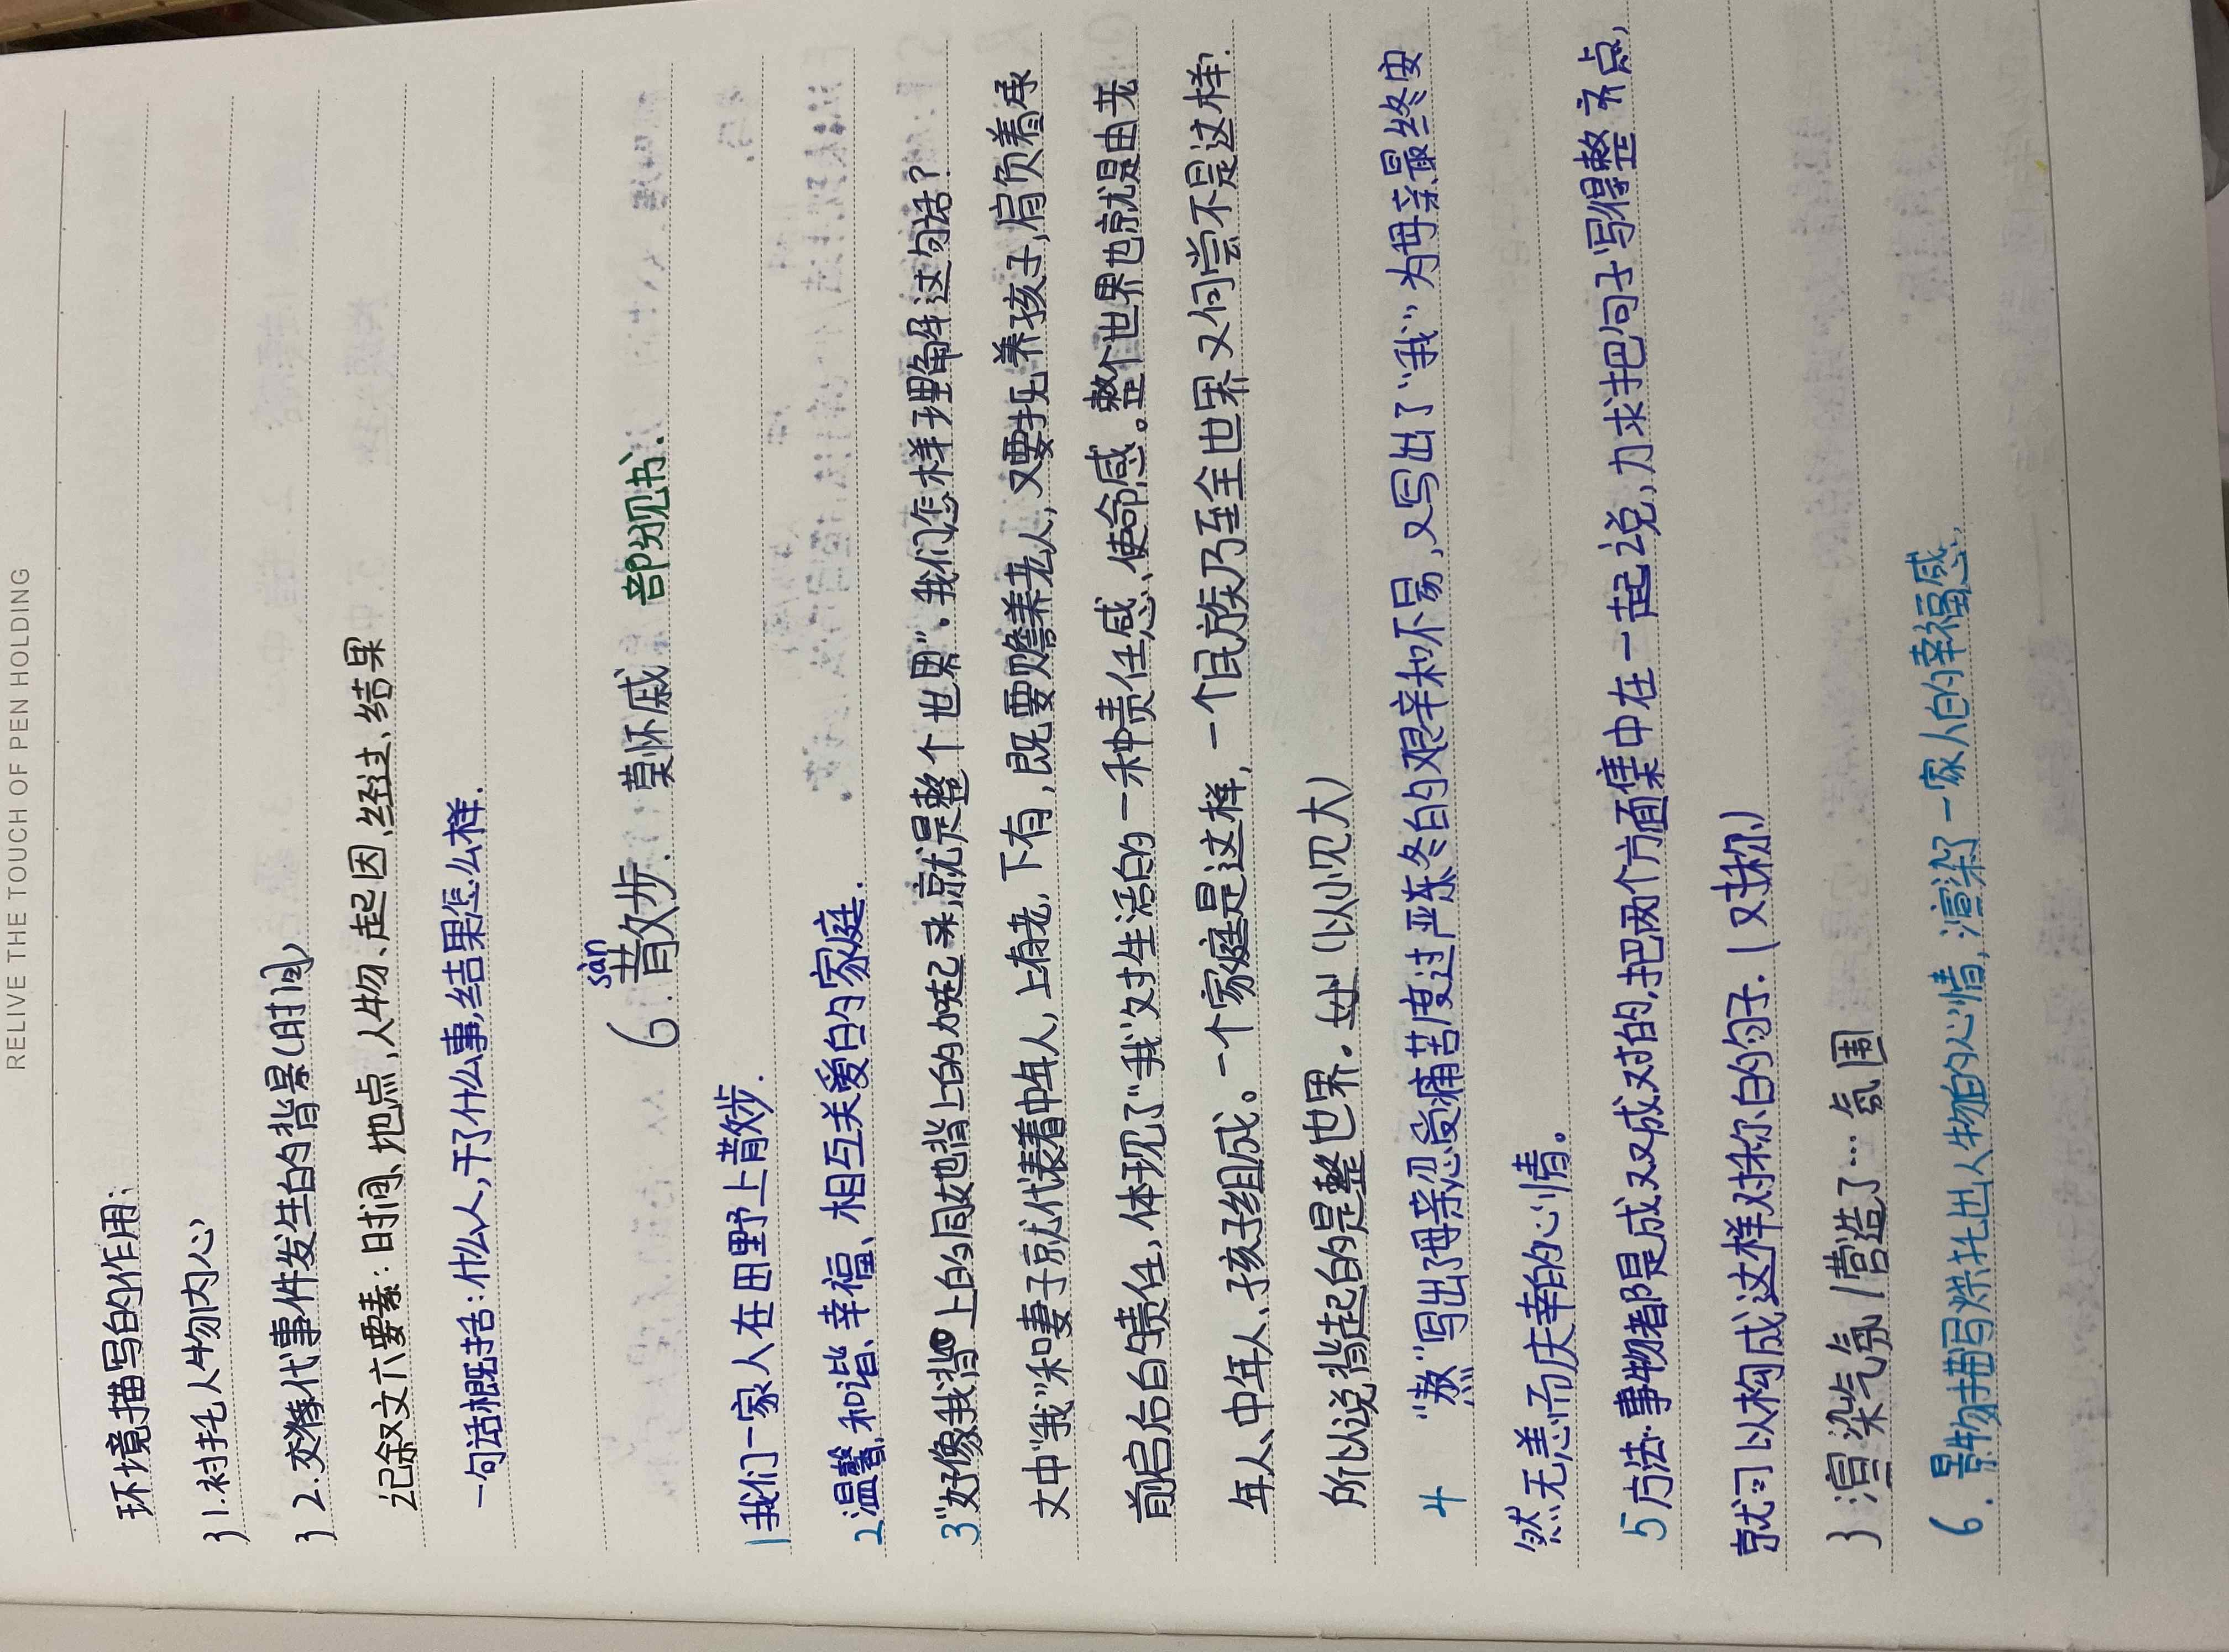 RELIVE THE TOUCH OF PEN HOLDING
环境描写的作用:
} 1.衬托人物内心
} 2.交代事件发生的背景(时间)
记叙文六要素:时间、地点,人物、起因,经过、结果
一句话概括:什么人,干了什么事,结果怎么样.
sàn
6.散步. 莫怀戚 部分见书.
1 我们一家人在田野上散步.
2 温馨,和谐、幸福、相互关爱的家庭.
3 "好像我背上的同她背上的加起来,就是整个世界".我们怎样理解这句话?
文中"我"和妻子就代表着中年人,上有老,下有,既要赡养老人,又要抚养孩子,肩负着承
前启后的责任,体现了"我"对生活的一种责任感、使命感。整个世界也就是由老
年人、中年人、孩子组成。一个家庭是这样,一个民族乃至全世界又何尝不是这样.
所以说背起的是整世界。(以小见大)
4 "熬"写出了母亲忍受痛苦度过严冬的艰辛和不易,又写出了"我"为母亲最终安
然无恙而庆幸的心情。
5 方法:事物都是成双成对的,把两个方面集中在一起说,力求把句子写得整齐点,
就可以构成这样对称的句子.(对称)
} 渲染气氛/营造了…氛围
6.景物描写烘托出人物的心情,渲染了一家人的幸福感.